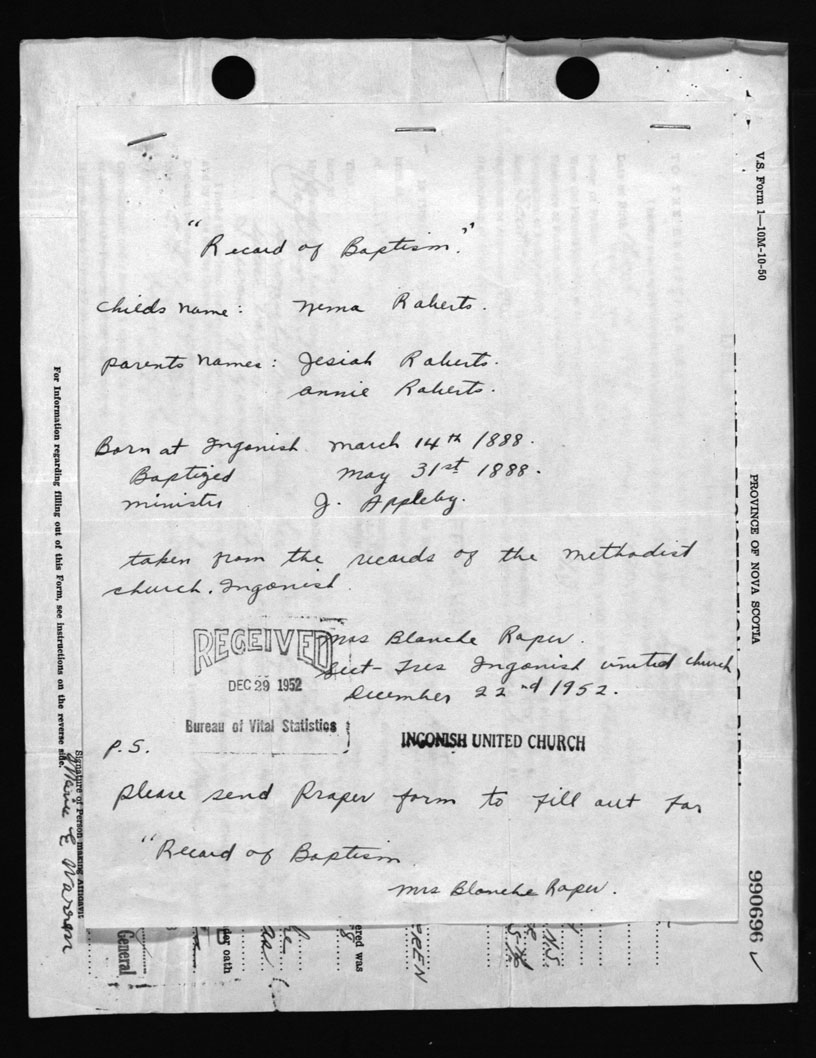 "Record of Baptism."
Childs Name: Nema Roberts.
Parents Names: Jesiah Roberts.
Annie Roberts.
Born at Ingonish. March 14th 1888.
Baptized May 31st 1888.
Minister J. Appleby.
taken from the records of the Methodist
church. Ingonish.
Mrs Blanche Roper.
Sect-Tres Ingonish United Church
December 22nd 1952.
RECEIVED
DEC 29 1952
Bureau of Vital Statistics
INGONISH UNITED CHURCH
P.S.
Please send Proper form to fill out for
"Record of Baptism.
Mrs Blanche Roper.
V.S. Form 1—10M-10-50
PROVINCE OF NOVA SCOTIA
990696
For Information regarding filling out of this Form, see instructions on the reverse side.
Signature of Person making Affidavit
E Warren
General
der oath
ered was
RREN
N.S.